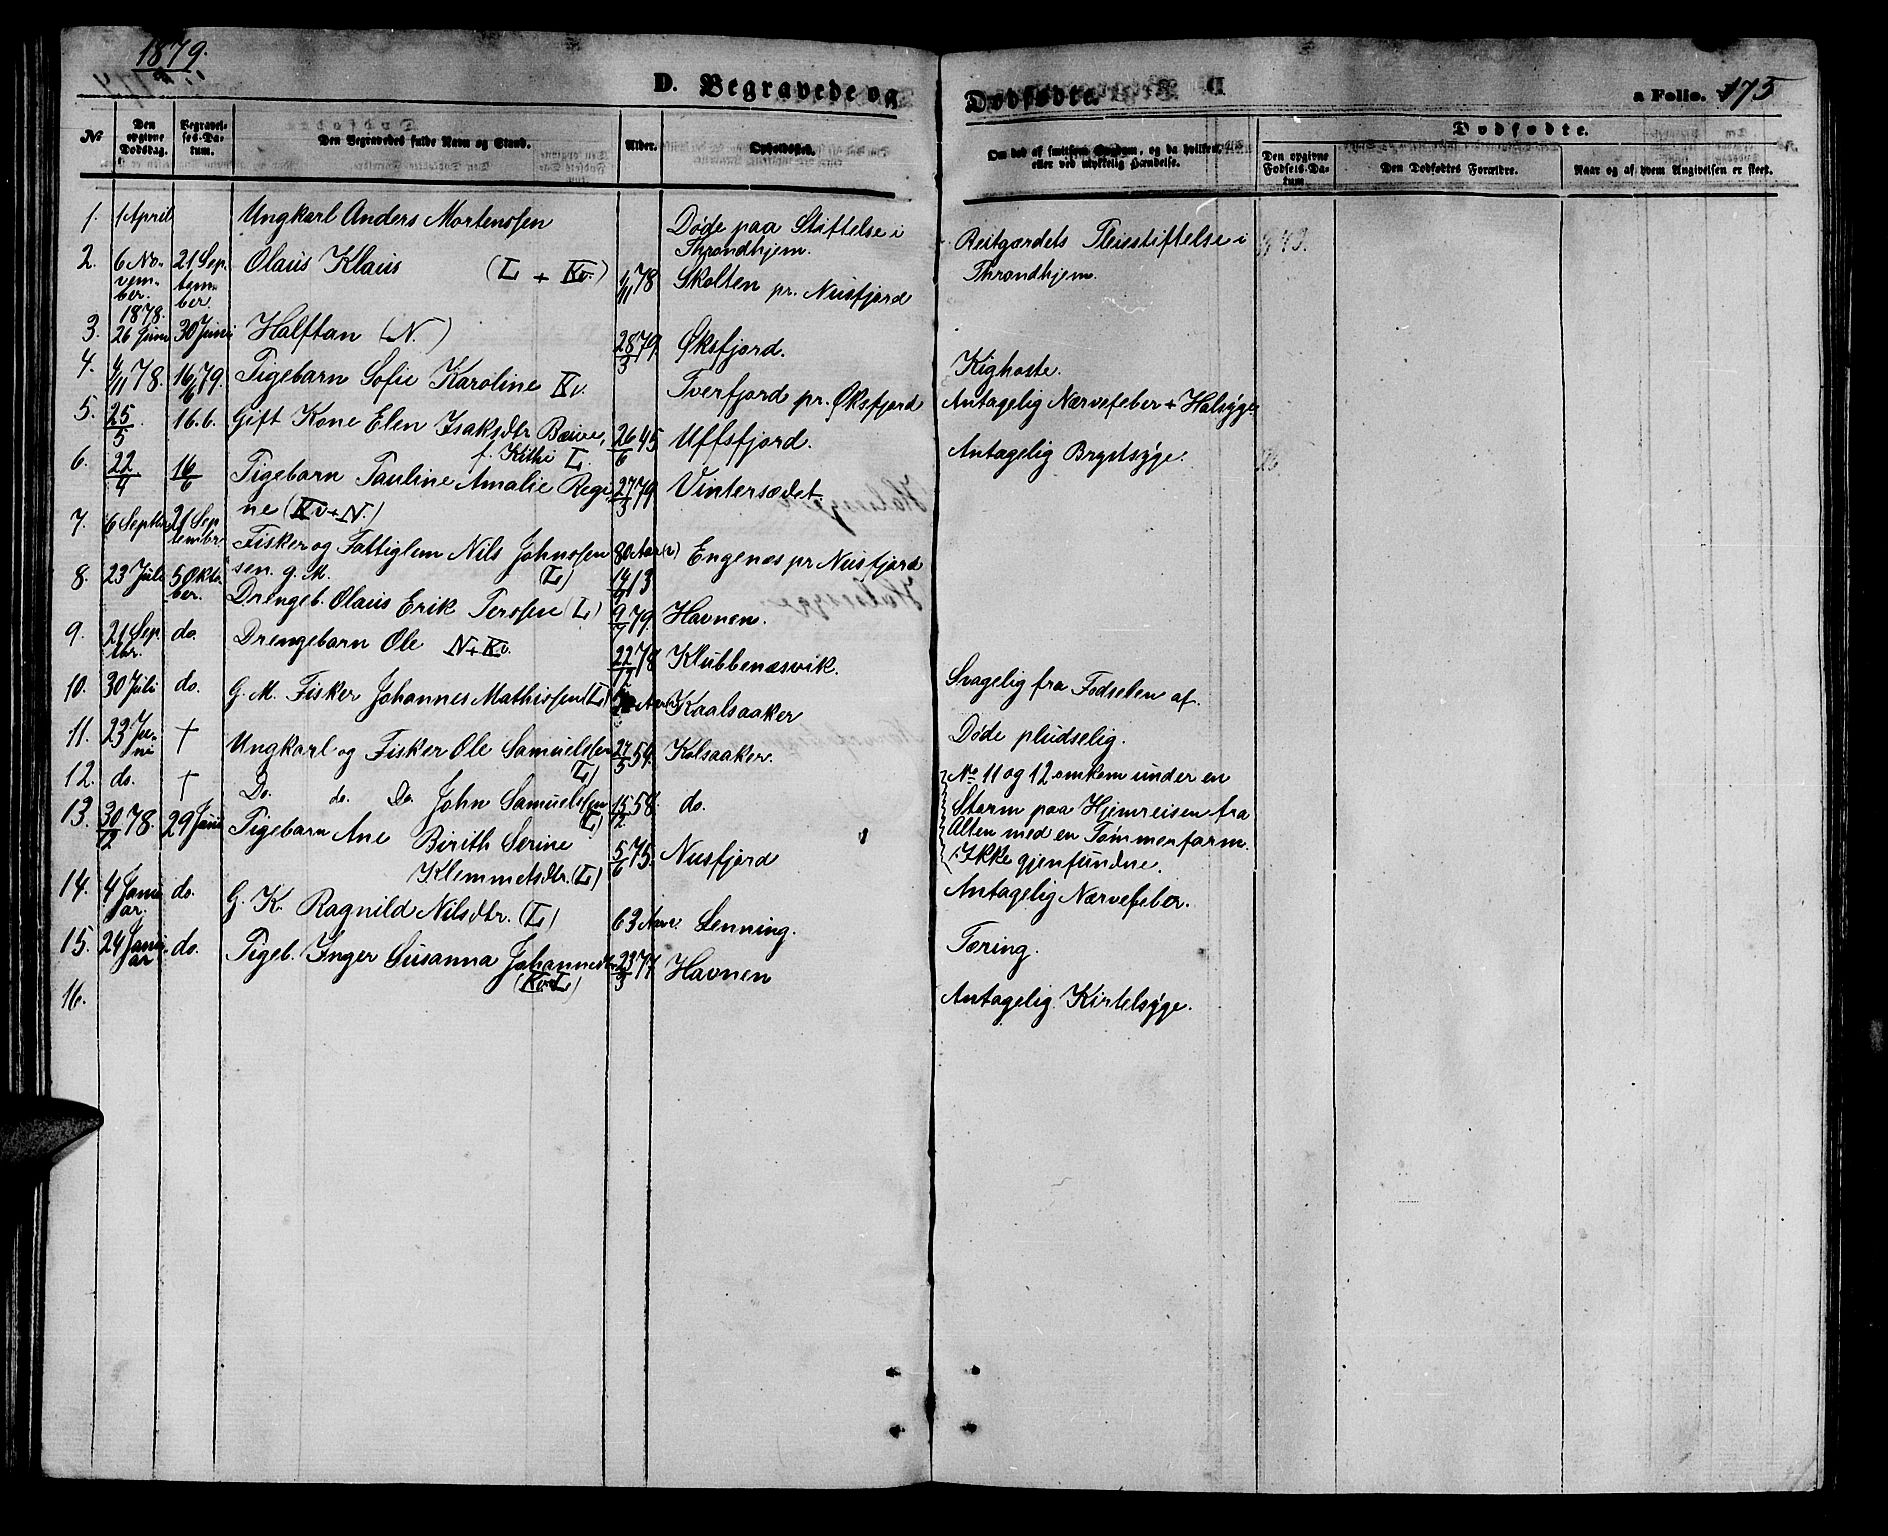 1879.
D. Begravede og Dødfødte. a Folio. 175
No
Den opgivne Dødsdag.
Begravelses-Datum.
Den Begravedes fulde Navn og Stand.
Alder.
Opholdssted.
Om død af smitsom Sygdom, og da hvilken, eller ved ulykkelig Hændelse.
Dødfødte.
Den opgivne Fødsels-Datum
Den Dødfødtes Forældre.
Naar og af hvem Angivelsen er skeet.
1. 1 April Ungkarl Anders Mortensen Døde paa Stiftelse i Throndhjem. Reitgjærdets Pleiestiftelse i Throndhjem.
2. 6 November 1878. 21 September Olaus Klaus (L + Kv.) 1/11 78 Skolten pr. Nusfjord
3. 26 Juni 30 Juni Halftan (N.) 28/3 79. Øksfjord. Kighoste.
4. 4/11 78. 16/6 79. Pigebarn Sofie Karoline Kv. Tverfjord pr. Øksfjord Antagelig Nærvefeber + Halsyge
5. 25/5 16.6. Gift Kone Elen Isaksdtr Bæive,
f. Kithi L. 26/6 45 Uffsfjord. Antagelig Brystsyge.
6. 22/4 16/6 Pigebarn Pauline Amalie Regi
ne (Kv + N.) 27/3 79. Vintersædet.
7. 6 Septbr 21 September Fisker og Fattiglem Nils Johnsen
sen. g. M. (L) 80 Aar Engenæs pr Nusfjord
8. 23 Juli 5 Oktober. Drengeb. Olaus Erik Persen (L) 9/7 79. Havnen.
9. 21 Septbr. do. Drengebarn Ole N + Kv. 22/12 78 Klubbenæsvik. Svagelig fra Fødselen af.
10. 30 Juli do. G. M. Fisker Johannes Mathisen (L) Kaalsaaker Døde pludselig.
11. 23 Juni + Ungkarl og Fisker Ole Samuelsen (L) 27/5 54. Kolsaaker. No 11 og 12 omkom under en
12. do. + Do. do. Do. John Samuelsen (L) 15/2 58. do. Storm paa Hjemreisen fra
Alten med en Tømmerfarm.
Ikke gjenfundne.
13. 30/12 78. 29 Juni Pigebarn Ane Birith Serine
Klemmetsdtr. (L) 5/6 75. Nusfjord Antagelig Nærvefeber.
14. 4 Januar. do. G. K. Ragnild Nilsdtr. (L) 63 Aar. Lenning. Tæring.
15. 24 Januar do. Pigeb. Inger Susanna Johannesdtr
(Kv + L) 23/3 77 Havnen Antagelig Kirtelsyge.
16.